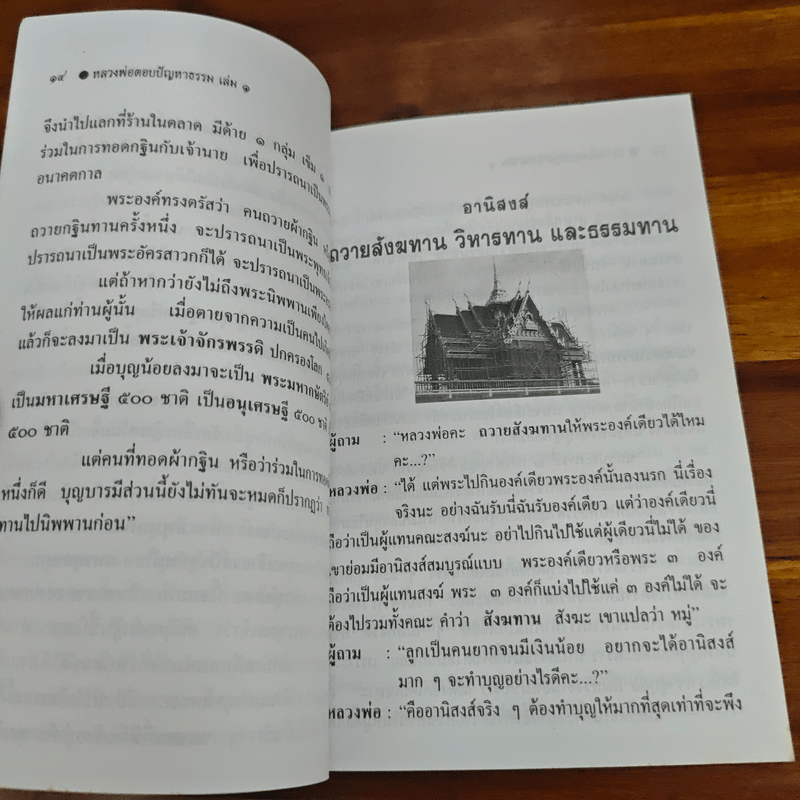 ๑๔ ● หลวงพ่อตอบปัญหาธรรม เล่ม ๑
จึงนำไปแลกที่ร้านในตลาด มีด้าย ๑ กลุ่ม เข็ม ๑
ร่วมในการทอดกฐินกับเจ้านาย เพื่อปรารถนาเป็น
อนาคตกาล
พระองค์ทรงตรัสว่า คนถวายผ้ากฐิน
ถวายกฐินทานครั้งหนึ่ง จะปรารถนาเป็นพระพุทธ
ปรารถนาเป็นพระอัครสาวกก็ได้ จะปรารถนาเป็นพระ
แต่ถ้าหากว่ายังไม่ถึงพระนิพพานเพียงใด
ให้ผลแก่ท่านผู้นั้น เมื่อตายจากความเป็นคนไป
แล้วก็จะลงมาเป็น พระเจ้าจักรพรรดิ ปกครองโลก
เมื่อบุญน้อยลงมาจะเป็น พระมหากษัตริย์
เป็นมหาเศรษฐี ๕๐๐ ชาติ เป็นอนุเศรษฐี ๕๐๐ ชาติ
๕๐๐ ชาติ
แต่คนที่ทอดผ้ากฐิน หรือว่าร่วมในการทอด
หนึ่งก็ดี บุญบารมีส่วนนี้ยังไม่ทันจะหมดก็ปรากฏว่า
ทานไปนิพพานก่อน”
อานิสงส์
ถวายสังฆทาน วิหารทาน และธรรมทาน
ผู้ถาม : “หลวงพ่อคะ ถวายสังฆทานให้พระองค์เดียวได้ไหม
คะ...?”
หลวงพ่อ : “ได้ แต่พระไปกินองค์เดียวพระองค์นั้นลงนรก นี่เรื่อง
จริงนะ อย่างฉันรับนี่ฉันรับองค์เดียว แต่ว่าองค์เดียวนี่
ถือว่าเป็นผู้แทนคณะสงฆ์นะ อย่าไปกินไปใช้แต่ผู้เดียวนี่ไม่ได้ ของ
เขาย่อมมีอานิสงส์สมบูรณ์แบบ พระองค์เดียวหรือพระ ๓ องค์
ถือว่าเป็นผู้แทนสงฆ์ พระ ๓ องค์ก็แบ่งไปใช้แค่ ๓ องค์ไม่ได้ จะ
ต้องไปรวมทั้งคณะ คำว่า สังฆทาน สังฆะ เขาแปลว่า หมู่”
ผู้ถาม : “ลูกเป็นคนยากจนมีเงินน้อย อยากจะได้อานิสงส์
มาก ๆ จะทำบุญอย่างไรดีคะ...?”
หลวงพ่อ : “คืออานิสงส์จริง ๆ ต้องทำบุญให้มากที่สุดเท่าที่จะพึง